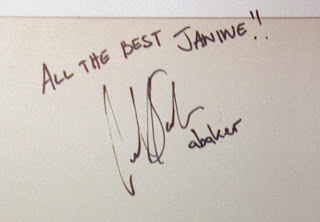 ALL THE BEST JANINE!!
abaker